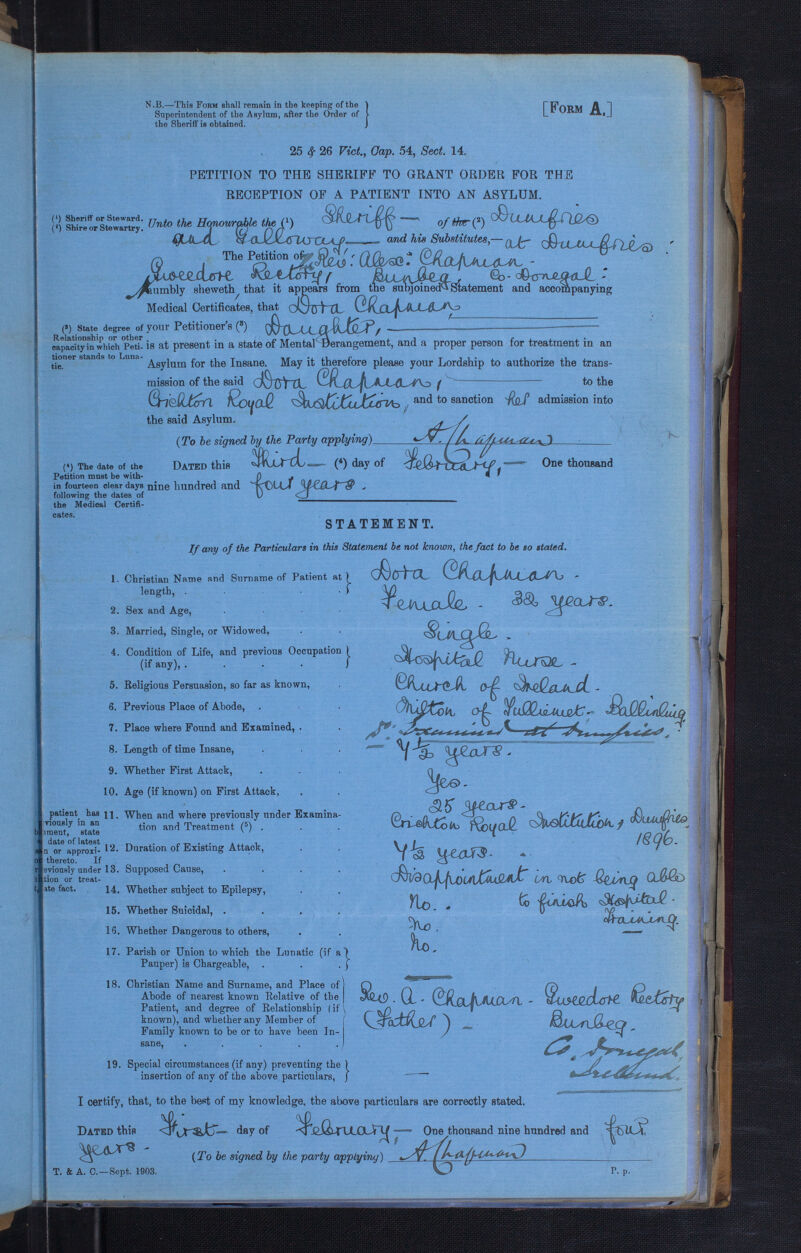 N.B.—This Form shall remain in the keeping of the
Superintendent of the Asylum, after the Order of
the Sheriff is obtained.
[Form A.]
25 & 26 Vict., Cap. 54, Sect. 14.
PETITION TO THE SHERIFF TO GRANT ORDER FOR THE
RECEPTION OF A PATIENT INTO AN ASYLUM.
(¹) Sheriff or Steward.
(²) Shire or Stewartry.
Unto the Honourable the (¹) Sheriff — of the (²) Dumfries
and Galloway — and his Substitutes,— at Dumfries :
The Petition of Rev: Alexr: Chapman -
Gweedore Rectory, Bunbeg, Co- Donegal :
Humbly sheweth, that it appears from the subjoined Statement and accompanying
Medical Certificates, that Dora Chapman
(³) State degree of
Relationship or other
capacity in which Peti-
tioner stands to Luna-
tic.
your Petitioner's (³) Daughter, —
is at present in a state of Mental Derangement, and a proper person for treatment in an
Asylum for the Insane. May it therefore please your Lordship to authorize the trans-
mission of the said Dora Chapman, — to the
Crichton Royal Institution, and to sanction her admission into
the said Asylum.
(To be signed by the Party applying) A. Chapman
(⁴) The date of the
Petition must be with-
in fourteen clear days
following the dates of
the Medical Certifi-
cates.
Dated this Third — (⁴) day of February, — One thousand
nine hundred and four years.
STATEMENT.
If any of the Particulars in this Statement be not known, the fact to be so stated.
1. Christian Name and Surname of Patient at
length, . . . . Dora Chapman -
2. Sex and Age, . . . Female - 32 years.
3. Married, Single, or Widowed, . . Single.
4. Condition of Life, and previous Occupation
(if any), . . . . Hospital Nurse -
5. Religious Persuasion, so far as known, . Church of Ireland -
6. Previous Place of Abode, . . Milton of Tulliemet - Ballinluig
7. Place where Found and Examined, . . Do. Examined at Dumfries.
8. Length of time Insane, . . . — 7½ years.
9. Whether First Attack, . . . Yes.
10. Age (if known) on First Attack, . . 25 years -
patient has
viously in an
ment, state
date of latest
n or approxi-
thereto. If
eviously under
tion or treat-
ate fact.
11. When and where previously under Examina-
tion and Treatment (⁵) . . . Crichton Royal Institution, Dumfries
1896.
12. Duration of Existing Attack, . . 7½ years.
13. Supposed Cause, . . . . Disappointment in not being able
to finish Hospital
Training.
14. Whether subject to Epilepsy, . . No.
15. Whether Suicidal, . . . . No.
16. Whether Dangerous to others, . . No.
17. Parish or Union to which the Lunatic (if a
Pauper) is Chargeable, . . . —
18. Christian Name and Surname, and Place of
Abode of nearest known Relative of the
Patient, and degree of Relationship (if
known), and whether any Member of
Family known to be or to have been In-
sane, . . . . . .
Rev. A. Chapman - Gweedore Rectory
(Father) - Bunbeg.
Co. Donegal,
Ireland.
19. Special circumstances (if any) preventing the
insertion of any of the above particulars, —
I certify, that, to the best of my knowledge, the above particulars are correctly stated.
Dated this First — day of February, — One thousand nine hundred and four
years -
(To be signed by the party applying) A. Chapman
T. & A. C.—Sept. 1903.
P. p.